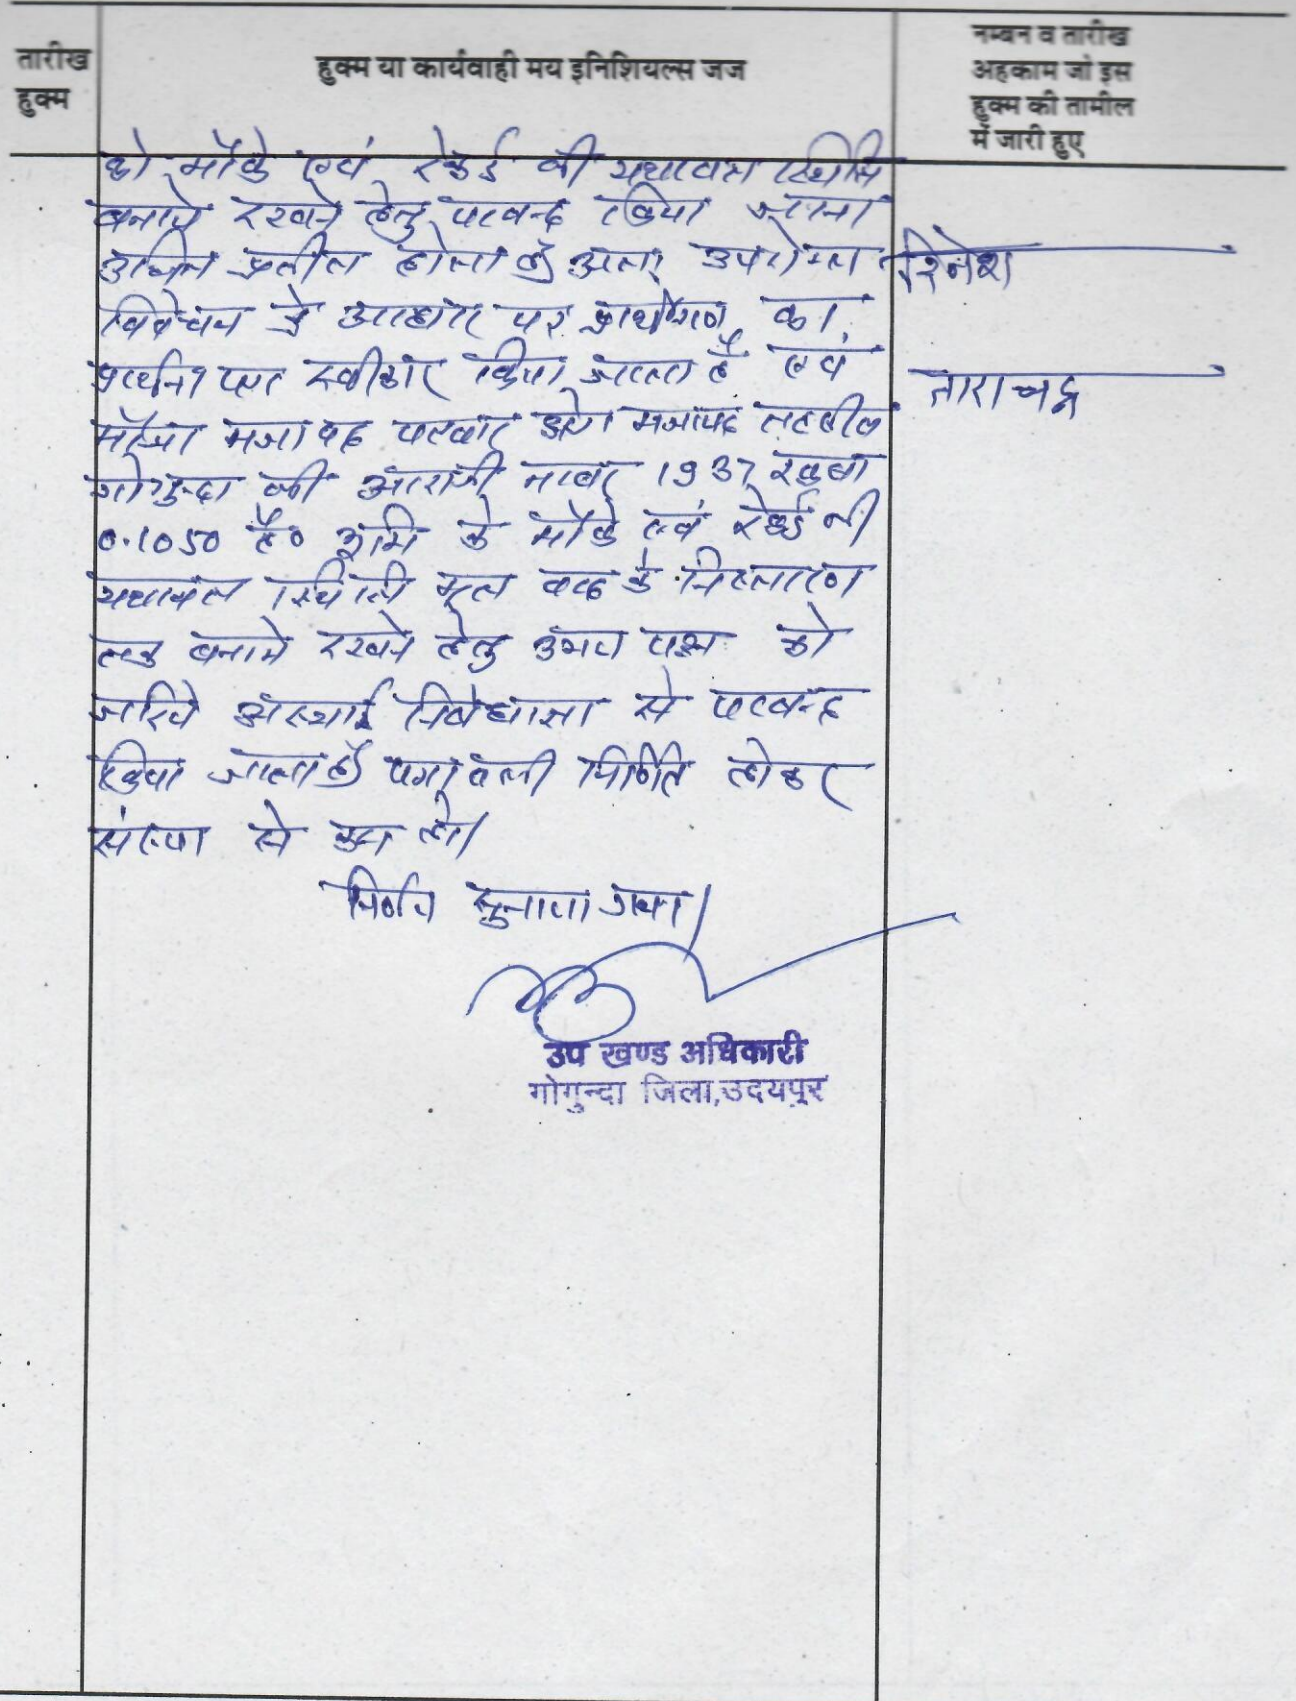 तारीख
हुक्म
हुक्म या कार्यवाही मय इनिशियल्स जज
नम्बन व तारीख
अहकाम जो इस
हुक्म की तामील
में जारी हुए
को मौके एवं रेकर्ड की यथावत स्थिति
बनाये रखने हेतु पाबन्द किया जाना
उचित प्रतीत होता है। अतः उपरोक्त
विवेचन के आधार पर प्रार्थीगण का
प्रार्थना पत्र स्वीकार किया जाता है एवं
मौजा मजावद पटवार क्षेत्र मजावद तहसील
गोगुन्दा की आराजी नम्बर 1937 रकबा
0.1050 है० भूमि के मौके एवं रेकर्ड की
यथावत स्थिति मूल वाद के निस्तारण
तक बनाये रखने हेतु उभय पक्ष को
जरिये अस्थाई निषेधाज्ञा से पाबन्द
किया जाता है। पत्रावली निर्णित होकर
संख्या से कम हो।
निर्णय सुनाया गया।
उप खण्ड अधिकारी
गोगुन्दा जिला,उदयपुर
दिनेश
ताराचन्द्र